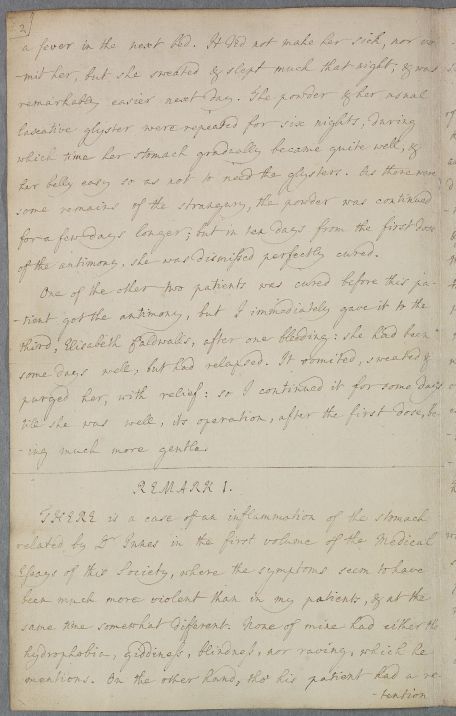 2]
a fever in the next bed. It did not make her sick, nor vo-
-mit her, but she sweated & slept much that night; & was
remarkably easier next day. The powder & her usual
laxative glyster were repeated for six nights, during
which time her stomach gradually became quite well, &
her belly easy so as not to need the glysters. As there were
some remains of the strangury, the powder was continued
for a few days longer; but in ten days from the first dose
of the antimony, she was dismissed perfectly cured.
One of the other two patients was cured before this pa-
-tient got the antimony, but I immediately gave it to the
third, Elisabeth after one bleeding: she had been
some days well, but had relapsed. It vomited, sweated &
purged her, with relief: so I continued it for some days
till she was well, its operation, after the first dose, be-
-ing much more gentle.
REMARK 1.
THERE is a case of an inflammation of the stomach
related by Dr Innes in the first volume of the Medical
Essays of this Society, where the symptoms seem to have
been much more violent than in my patients, & at the
same time somewhat different. None of mine had either the
hydrophobia, giddiness, blindness, nor raving, which he
mentions. On the other hand, tho' his patient had a re-
-tension